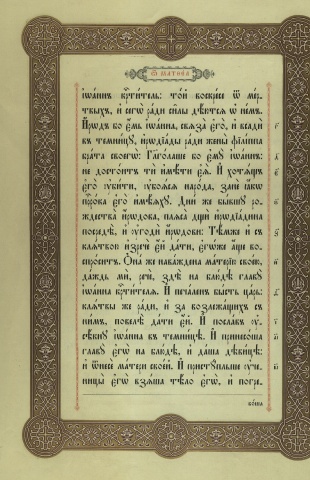 Ѿ МАТѲЕА
і҆ѡа́ннъ крⷭ҇ти́тель: то́й воскре́се ѿ ме́р-
твыхъ, и҆ сегѡ̀ ра́ди си̑лы дѣ́ютсѧ ѡ҆ не́мъ.
И҆́рѡдъ бо є҆́мь і҆ѡа́нна, свѧза̀ є҆го̀, и҆ всадѝ
въ темни́цꙋ, и҆рѡдїа́ды ра́ди жены̀ фїлі́ппа
бра́та своегѡ̀: Гл҃аше бо є҆мꙋ̀ і҆ѡа́ннъ:
не досто́итъ тѝ и҆мѣ́ти є҆ѧ̀. И҆ хотѧ́щь
є҆го̀ ᲂу҆би́ти, ᲂу҆боѧ́сѧ наро́да, занѐ ꙗ҆́кѡ
прⷪ҇ро́ка є҆го̀ и҆мѣ́ѧхꙋ. Дню́ же бы́вшꙋ ро-
ждества̀ и҆́рѡдова, плѧса̀ дщѝ и҆рѡдїа́дина
посредѣ̀, и҆ ᲂу҆годѝ и҆́рѡдови: Тѣ́мже и҆ съ
клѧ́твою и҆зречѐ є҆́й да́ти, є҆гѡ́же а҆́ще во-
спро́ситъ. Ѻ҆на́ же нава́ждена ма́терїю свое́ю,
да́ждь мѝ, речѐ, здѣ̀ на блю́дѣ главꙋ̀
і҆ѡа́нна крⷭ҇ти́телѧ. И҆ печа́ленъ бы́сть ца́рь:
клѧ́твы же ра́ди, и҆ за возлежа́щихъ съ
ни́мъ, повелѣ̀ да́ти є҆́й. И҆ посла́въ ᲂу҆-
сѣ́кнꙋ і҆ѡа́нна въ темни́цѣ. И҆ принесо́ша
главꙋ̀ є҆гѡ̀ на блю́дѣ, и҆ да́ша дѣви́цѣ:
и҆ ѿнесѐ ма́тери свое́й. И҆ пристꙋ́пльше ᲂу҆че-
ницы̀ є҆гѡ̀ взѧ́ша тѣ́ло є҆гѡ̀, и҆ погре-